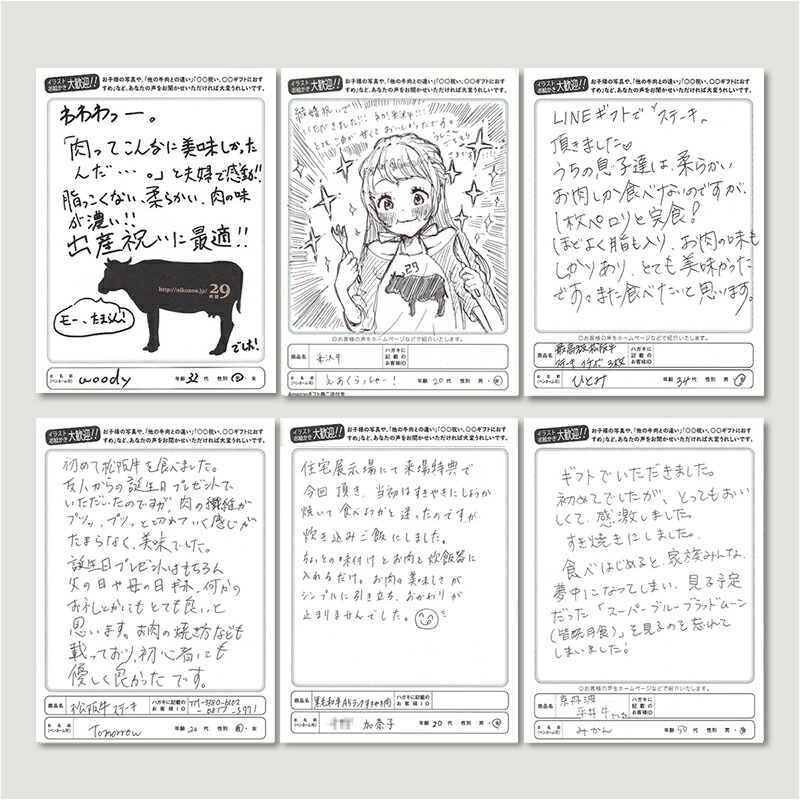 イラスト
お絵かき
大歓迎!!
お子様の写真や、「他の牛肉との違い」「〇〇祝い、〇〇ギフトにおす
すめ」など、あなたの声をお聞かせいただければ大変うれしいです。
わわわっー。
「肉ってこんなに美味しかった
んだ…。」と夫婦で感動!!
脂っこくない、柔らかい、肉の味
が濃い!!
出産祝いに最適!!
http://nikuzou.jp/ 29
モー、たまらん!
でした!
名前
(ペンネーム可)
woody
年齢 32 代 性別 男・女
イラスト
お絵かき
大歓迎!!
お子様の写真や、「他の牛肉との違い」「〇〇祝い、〇〇ギフトにおす
すめ」など、あなたの声をお聞かせいただければ大変うれしいです。
結婚祝いで
いただきました!!
とても油が甘くておいしかったです。
29
◎お客様の声をホームページなどで紹介いたします。
商品名
米沢牛
ハガキに
記載の
お客様ID
名前
(ペンネーム可)
年齢 20 代 性別 男・女
イラスト
お絵かき
大歓迎!!
お子様の写真や、「他の牛肉との違い」「〇〇祝い、〇〇ギフトにおす
すめ」など、あなたの声をお聞かせいただければ大変うれしいです。
LINEギフトで"ステーキ"
頂きました♡
うちの息子達は、柔らかい
お肉しか食べないのですが、
1枚ペロリと完食!
ほどよく脂も入り、お肉の味も
しかりあり、とても美味かった
です。また食べたいと思います。
◎お客様の声をホームページなどで紹介いたします。
商品名
最高級松阪牛
ステーキ イチボ 3枚
ハガキに
記載の
お客様ID
名前
(ペンネーム可)
ひとみ
年齢 34 代 性別 男・女
イラスト
お絵かき
大歓迎!!
お子様の写真や、「他の牛肉との違い」「〇〇祝い、〇〇ギフトにおす
すめ」など、あなたの声をお聞かせいただければ大変うれしいです。
初めて松阪牛を食べました。
友人からの誕生日プレゼントで
いただいたのですが、肉の繊維が
プツッ、プツッと切れていく感じが
たまらなく、美味でした。
誕生日プレゼントはもちろん
父の日や母の日ギフト、何かの
お礼しとかにもとても良いと
思います。お肉の焼き方なども
載っており、初心者にも
優しく良かったです。
商品名
松阪牛ステーキ
ハガキに記載の
お客様ID
名前
(ペンネーム可)
Tomorrow
年齢 20 代 性別 男・女
イラスト
お絵かき
大歓迎!!
お子様の写真や、「他の牛肉との違い」「〇〇祝い、〇〇ギフトにおす
すめ」など、あなたの声をお聞かせいただければ大変うれしいです。
住宅展示場にて来場特典で
今回頂き、当初はすきやきにしようか
焼いて食べようかと迷ったのですが
炊き込みご飯にしました。
ちょっとの味付けとお肉を炊飯器に
入れるだけ。お肉の美味しさが
シンプルに引き立ち、おかわりが
止まりませんでした。
商品名
黒毛和牛A5ランクすきやき肉
ハガキに記載の
お客様ID
名前
(ペンネーム可)
加奈子
年齢 20 代 性別 男・女
イラスト
お絵かき
大歓迎!!
お子様の写真や、「他の牛肉との違い」「〇〇祝い、〇〇ギフトにおす
すめ」など、あなたの声をお聞かせいただければ大変うれしいです。
ギフトでいただきました。
初めてでしたが、とってもおいし
くて、感激しました。
すき焼きにしました。
食べはじめると、家族みんな、
夢中になってしまい、見る予定
だった「スーパーブルーブラッドムーン
(皆既月食)」を見るのを忘れて
しまいました!
◎お客様の声をホームページなどで紹介いたします。
商品名
京丹波
平井牛でした
ハガキに
記載の
お客様ID
名前
(ペンネーム可)
みかん
年齢 50 代 性別 男・女